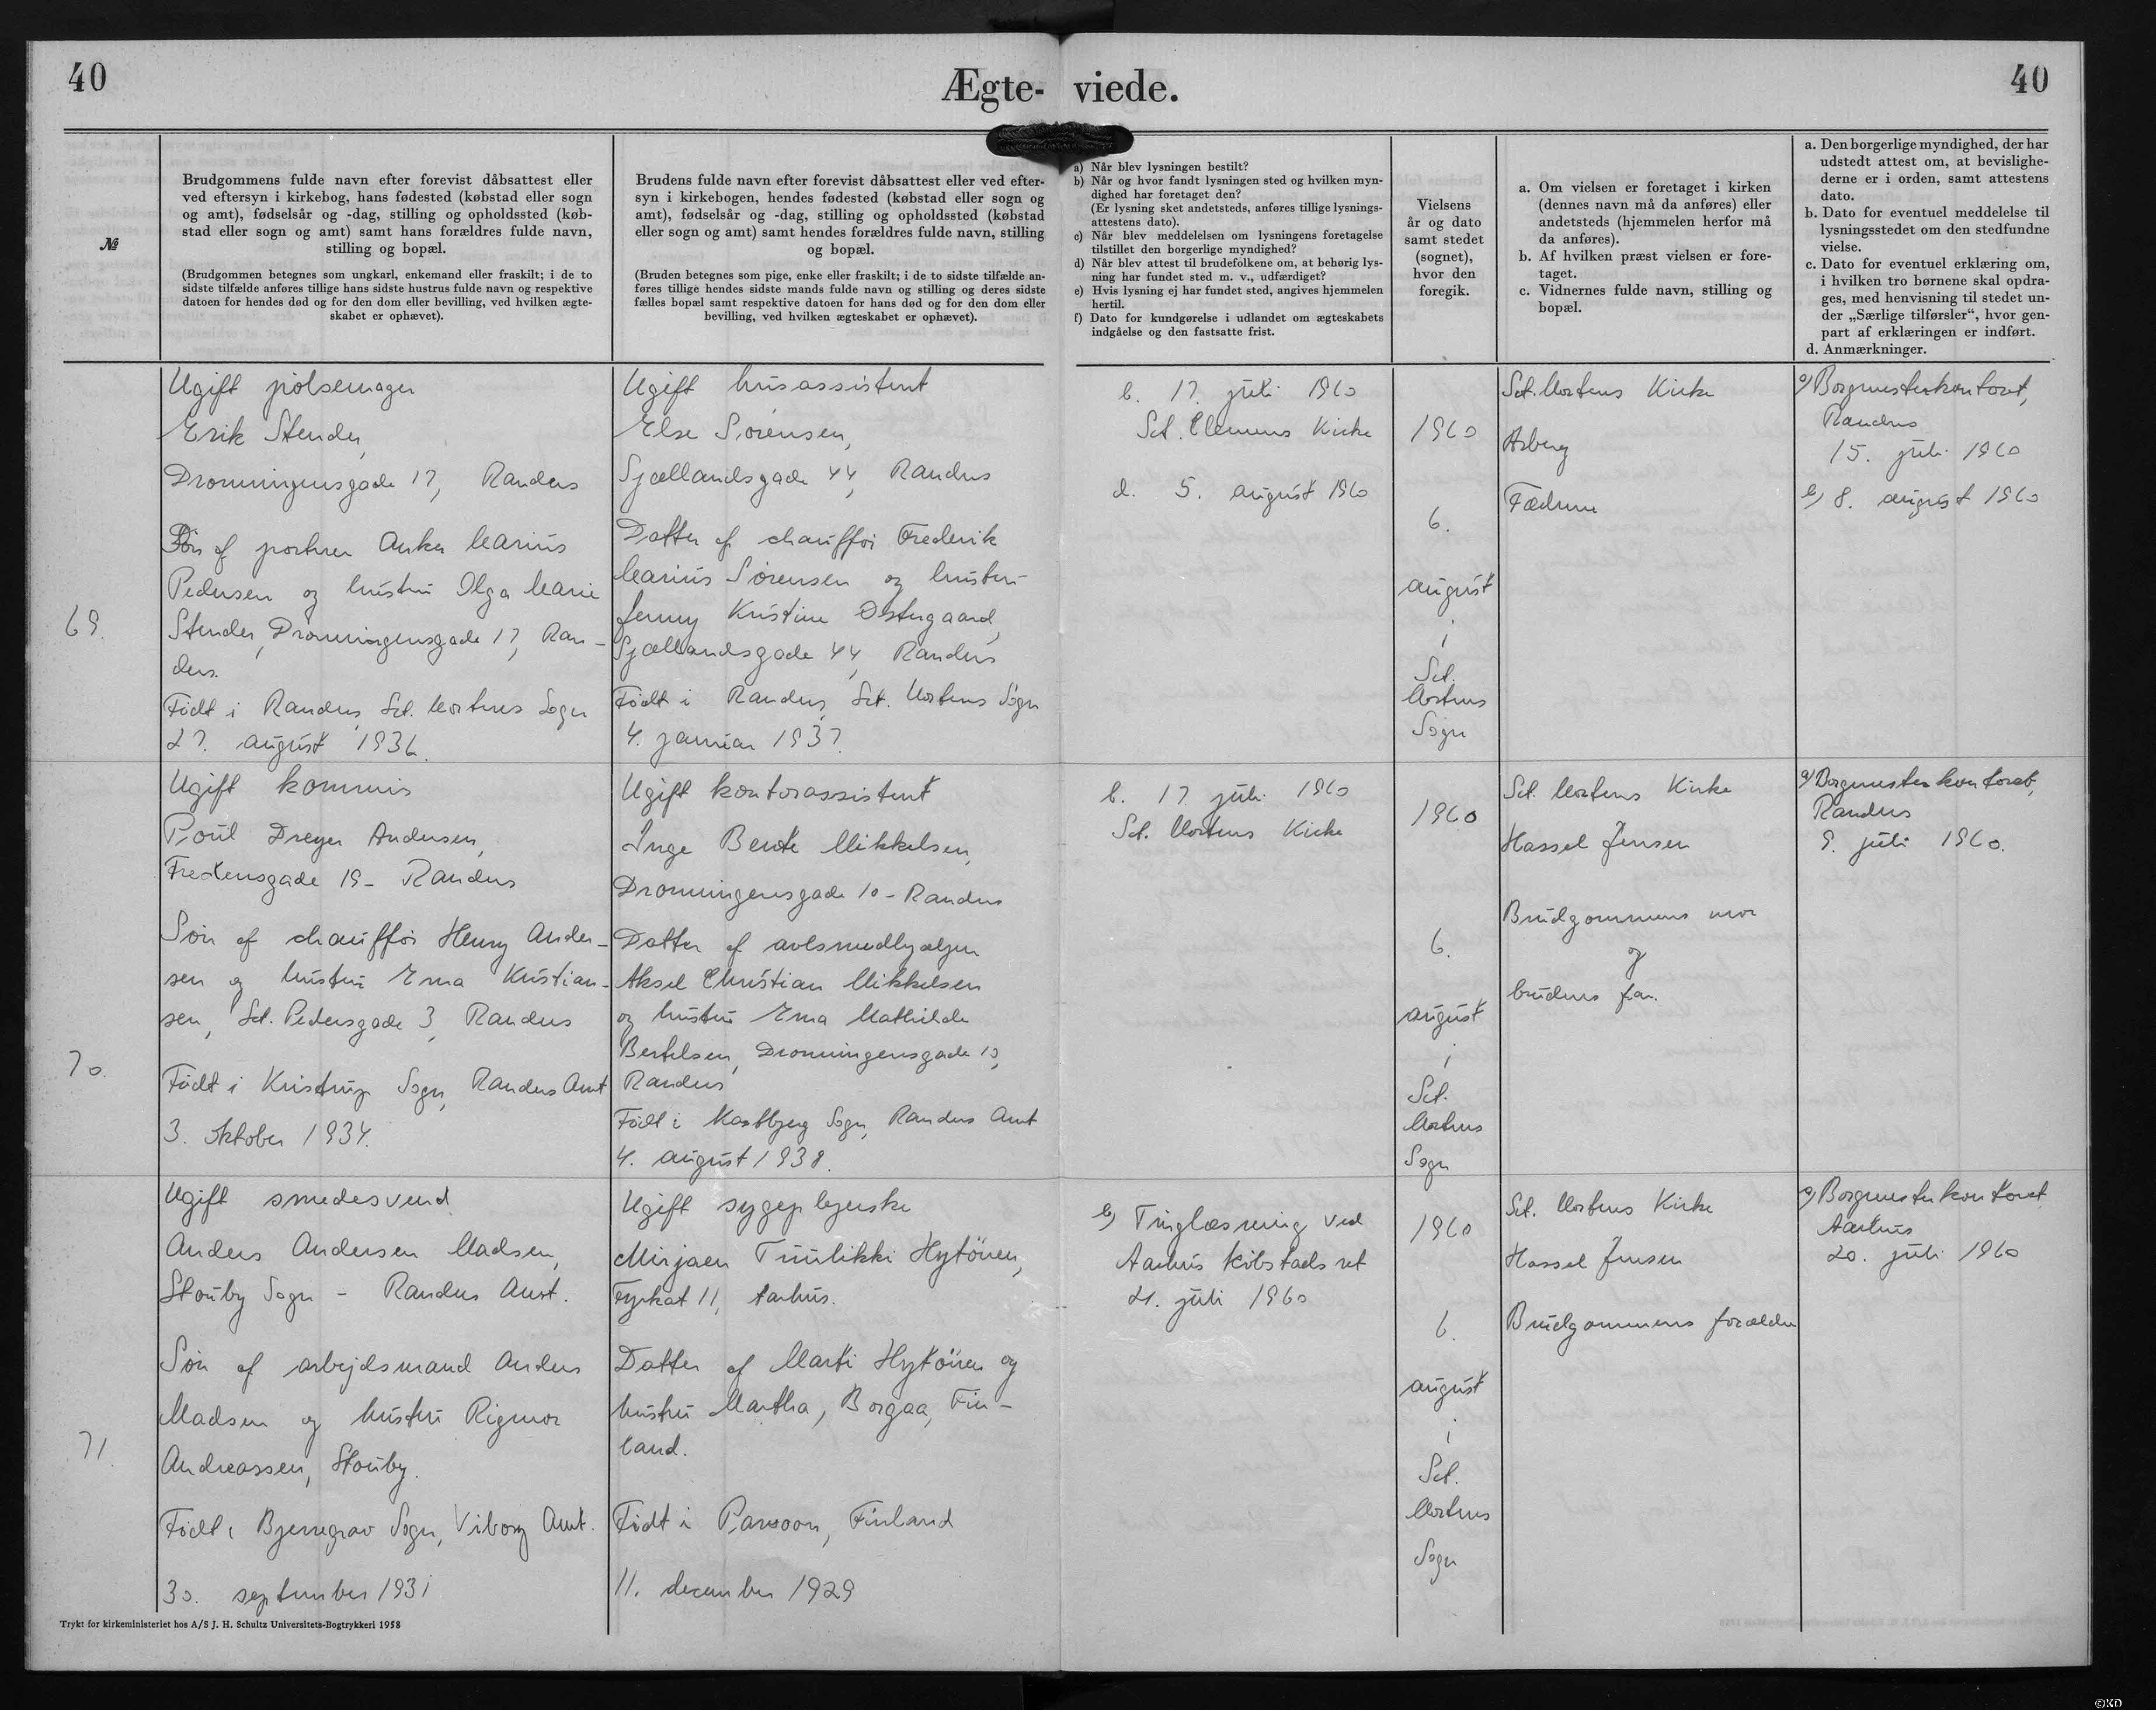 40
Ægte- viede.
40
№
Brudgommens fulde navn efter forevist dåbsattest eller
ved eftersyn i kirkebog, hans fødested (købstad eller sogn
og amt), fødselsår og -dag, stilling og opholdssted (køb-
stad eller sogn og amt) samt hans forældres fulde navn,
stilling og bopæl.
(Brudgommen betegnes som ungkarl, enkemand eller fraskilt; i de to
sidste tilfælde anføres tillige hans sidste hustrus fulde navn og respektive
datoen for hendes død og for den dom eller bevilling, ved hvilken ægte-
skabet er ophævet).
Brudens fulde navn efter forevist dåbsattest eller ved efter-
syn i kirkebogen, hendes fødested (købstad eller sogn og
amt), fødselsår og -dag, stilling og opholdssted (købstad
eller sogn og amt) samt hendes forældres fulde navn, stilling
og bopæl.
(Bruden betegnes som pige, enke eller fraskilt; i de to sidste tilfælde an-
føres tillige hendes sidste mands fulde navn og stilling og deres sidste
fælles bopæl samt respektive datoen for hans død og for den dom eller
bevilling, ved hvilken ægteskabet er ophævet).
a) Når blev lysningen bestilt?
b) Når og hvor fandt lysningen sted og hvilken myn-
dighed har foretaget den?
(Er lysning sket andetsteds, anføres tillige lysnings-
attestens dato).
c) Når blev meddelelsen om lysningens foretagelse
tilstillet den borgerlige myndighed?
d) Når blev attest til brudefolkene om, at behørig lys-
ning har fundet sted m. v., udfærdiget?
e) Hvis lysning ej har fundet sted, angives hjemmelen
hertil.
f) Dato for kundgørelse i udlandet om ægteskabets
indgåelse og den fastsatte frist.
Vielsens
år og dato
samt stedet
(sognet),
hvor den
foregik.
a. Om vielsen er foretaget i kirken
(dennes navn må da anføres) eller
andetsteds (hjemmelen herfor må
da anføres).
b. Af hvilken præst vielsen er fore-
taget.
c. Vidnernes fulde navn, stilling og
bopæl.
a. Den borgerlige myndighed, der har
udstedt attest om, at bevislighe-
derne er i orden, samt attestens
dato.
b. Dato for eventuel meddelelse til
lysningsstedet om den stedfundne
vielse.
c. Dato for eventuel erklæring om,
i hvilken tro børnene skal opdra-
ges, med henvisning til stedet un-
der „Særlige tilførsler“, hvor gen-
part af erklæringen er indført.
d. Anmærkninger.
69.
Ugift pølsemager
Erik Stender,
Dronningensgade 17, Randers
Søn af portner Anker Marius
Pedersen og hustru Olga Marie
Stender, Dronningensgade 17, Ran-
ders.
Født i Randers, Sct. Mortens Sogn
27. august 1936.
Ugift husassistent
Else Sørensen,
Sjællandsgade 44, Randers
Datter af chauffør Frederik
Marius Sørensen og hustru
Jenny Kristine Østergaard,
Sjællandsgade 44, Randers
Født i Randers, Sct. Mortens Sogn
4. januar 1937.
b. 17. juli 1960
Sct. Clemens Kirke
d. 5. august 1960
1960
6.
august
i
Sct.
Mortens
Sogn
Sct. Mortens Kirke
Asberg
Fædrene
a) Borgmesterkontoret,
Randers
15. juli 1960
b) 8. august 1960
70.
Ugift kommis
Poul Dreyer Andersen,
Fredensgade 19 - Randers
Søn af chauffør Henry Ander-
sen og hustru Erna Kristian-
sen, Sct. Pedersgade 3, Randers
Født i Kristrup Sogn, Randers Amt
3. oktober 1934.
Ugift kontorassistent
Inge Bente Mikkelsen,
Dronningensgade 10 - Randers
Datter af avlsmedhjælper
Aksel Christian Mikkelsen
og hustru Erna Mathilde
Bertelsen, Dronningensgade 10,
Randers
Født i Kastbjerg Sogn, Randers Amt
4. august 1938.
b. 17. juli 1960
Sct. Mortens Kirke
1960
6.
august
i
Sct.
Mortens
Sogn
Sct. Mortens Kirke
Hassel Jensen
Brudgommens mor
og
brudens far.
a) Borgmesterkontoret,
Randers
9. juli 1960.
71.
Ugift smedesvend
Anders Andersen Madsen,
Støuby Sogn - Randers Amt.
Søn af arbejdsmand Anders
Madsen og hustru Rigmor
Andreassen, Støuby.
Født i Bjerregrav Sogn, Viborg Amt.
30. september 1931
Ugift sygeplejerske
Mirjaen Tuulikki Hytönen,
Fyrkat 11, Aarhus.
Datter af Marti Hytönen og
hustru Martha, Borgaa, Fin-
land.
Født i Finland
11. december 1929
b) Tinglæsning ved
Aarhus købstads ret
21. juli 1960
1960
6.
august
i
Sct.
Mortens
Sogn
Sct. Mortens Kirke
Hassel Jensen
Brudgommens forældre
a) Borgmesterkontoret
Aarhus
20. juli 1960
Trykt for kirkeministeriet hos A/S J. H. Schultz Universitets-Bogtrykkeri 1958
©KD